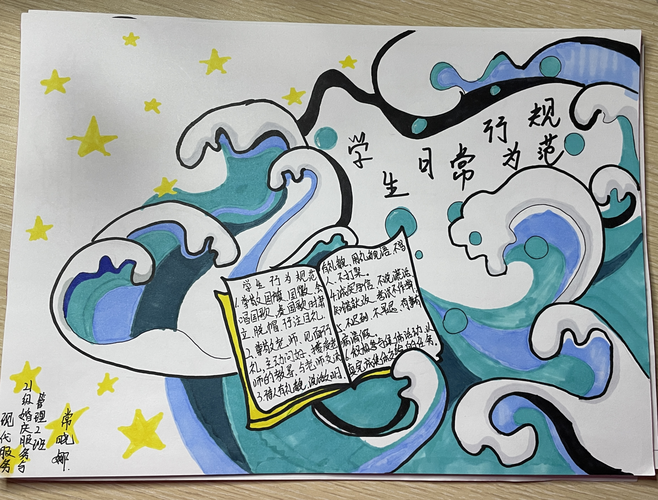 学生日常行为规范
学生行为规范
1.尊敬国旗、国徽,会
唱国歌,奏国歌时肃
立、脱帽、行注目礼。
2.尊敬老师,见面行
礼,主动问好,接受老
师的教导,与老师交流
3.待人有礼貌,说话
有礼貌,用礼貌语,不骂
人,不打架。
4.诚实守信,不说谎话
知错就改,考试不作弊
5.不迟到,不早退,有事
病请假。
6.积极参与集体活动,认
真完成集体交给的任务。
现代服务
21级婚庆服务与
管理2班
常晓娜